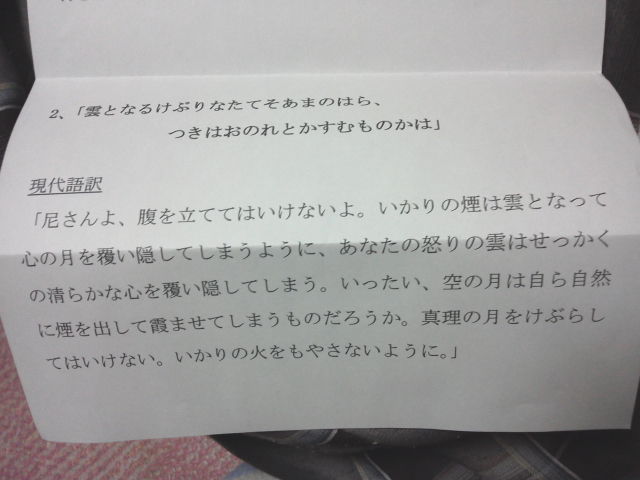 2、「雲となるけぶりなたてそあまのはら、
つきはおのれとかすむものかは」
現代語訳
「尼さんよ、腹を立ててはいけないよ。いかりの煙は雲となって
心の月を覆い隠してしまうように、あなたの怒りの雲はせっかく
の清らかな心を覆い隠してしまう。いったい、空の月は自ら自然
に煙を出して霞ませてしまうものだろうか。真理の月をけぶらし
てはいけない。いかりの火をもやさないように。」